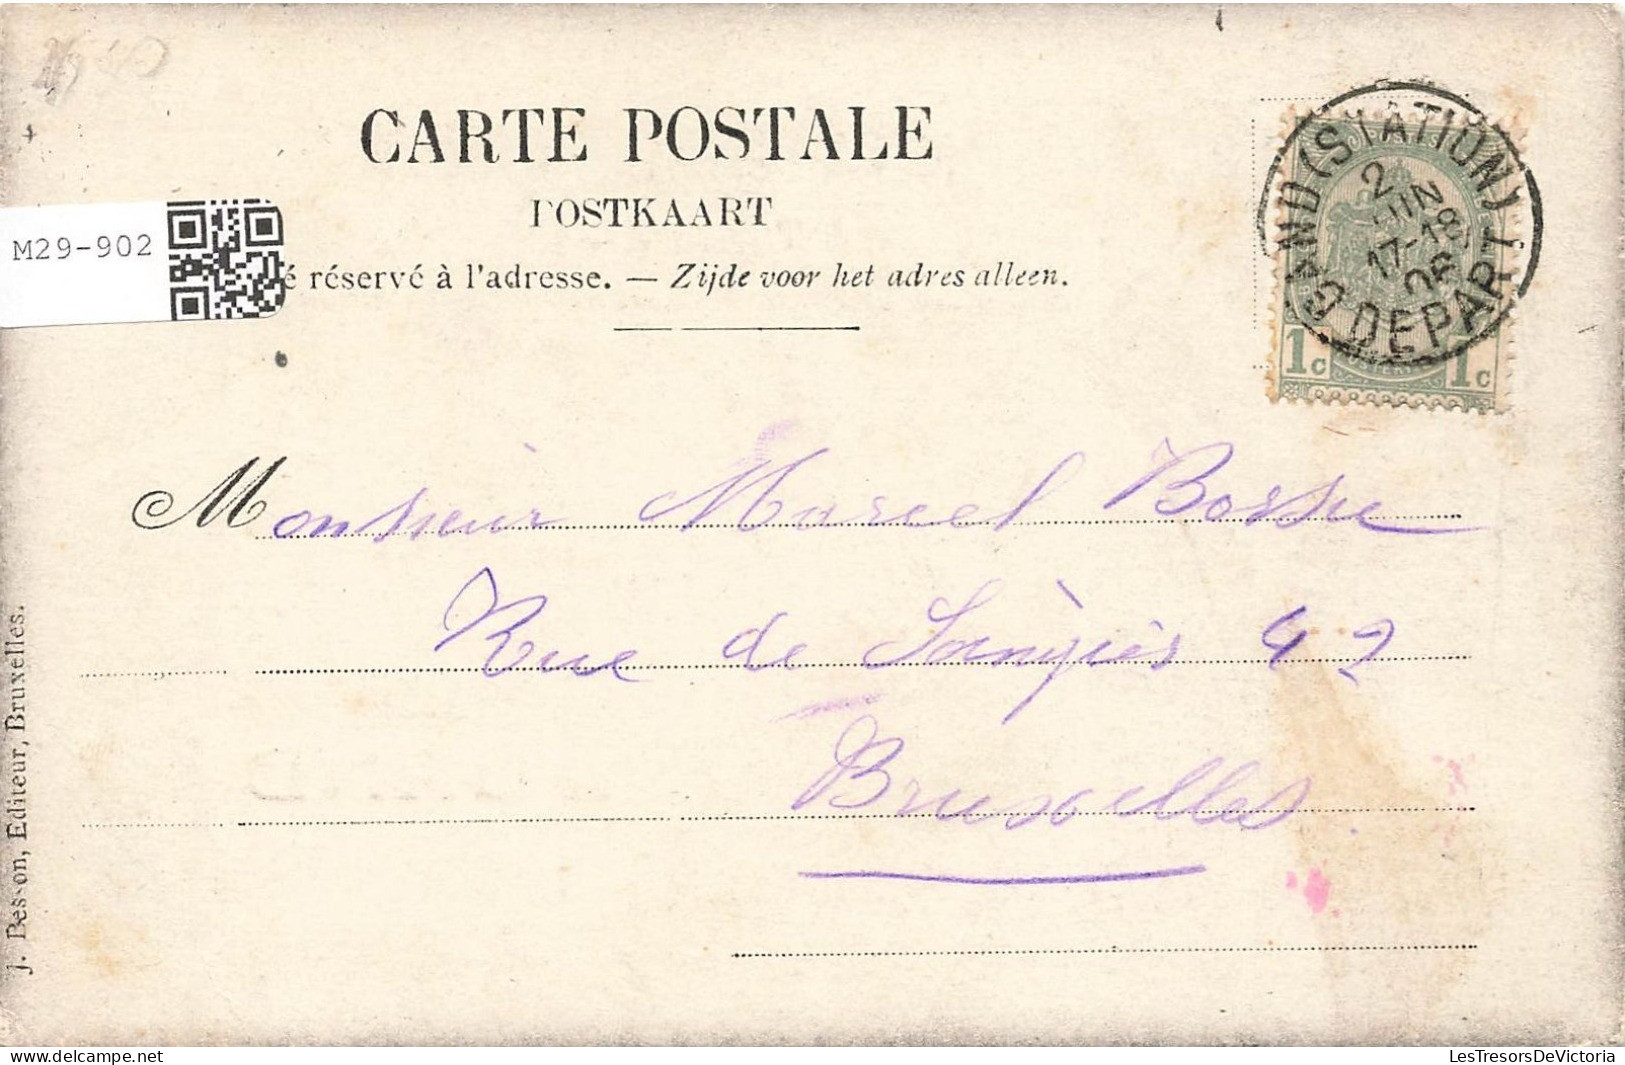 CARTE POSTALE
POSTKAART
M29-902
é réservé à l'adresse. — Zijde voor het adres alleen.
GAND (STATION)
2
JUIN
17-18
06
DEPART
1c 1c
Monsieur Marcel Bossu
Rue de 42
Bruxelles
J. Besson, Editeur, Bruxelles.
TimbresDelcampe.net
LesTresorsDeVictoria